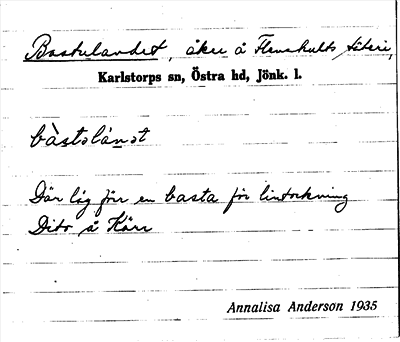 Bastulandet, åker å Flenshults säteri,
Karlstorps sn, Östra hd, Jönk. l.
bàstəlánət
Där låg förr en basta för lintorkning
Dito å Kärr
Annalisa Anderson 1935